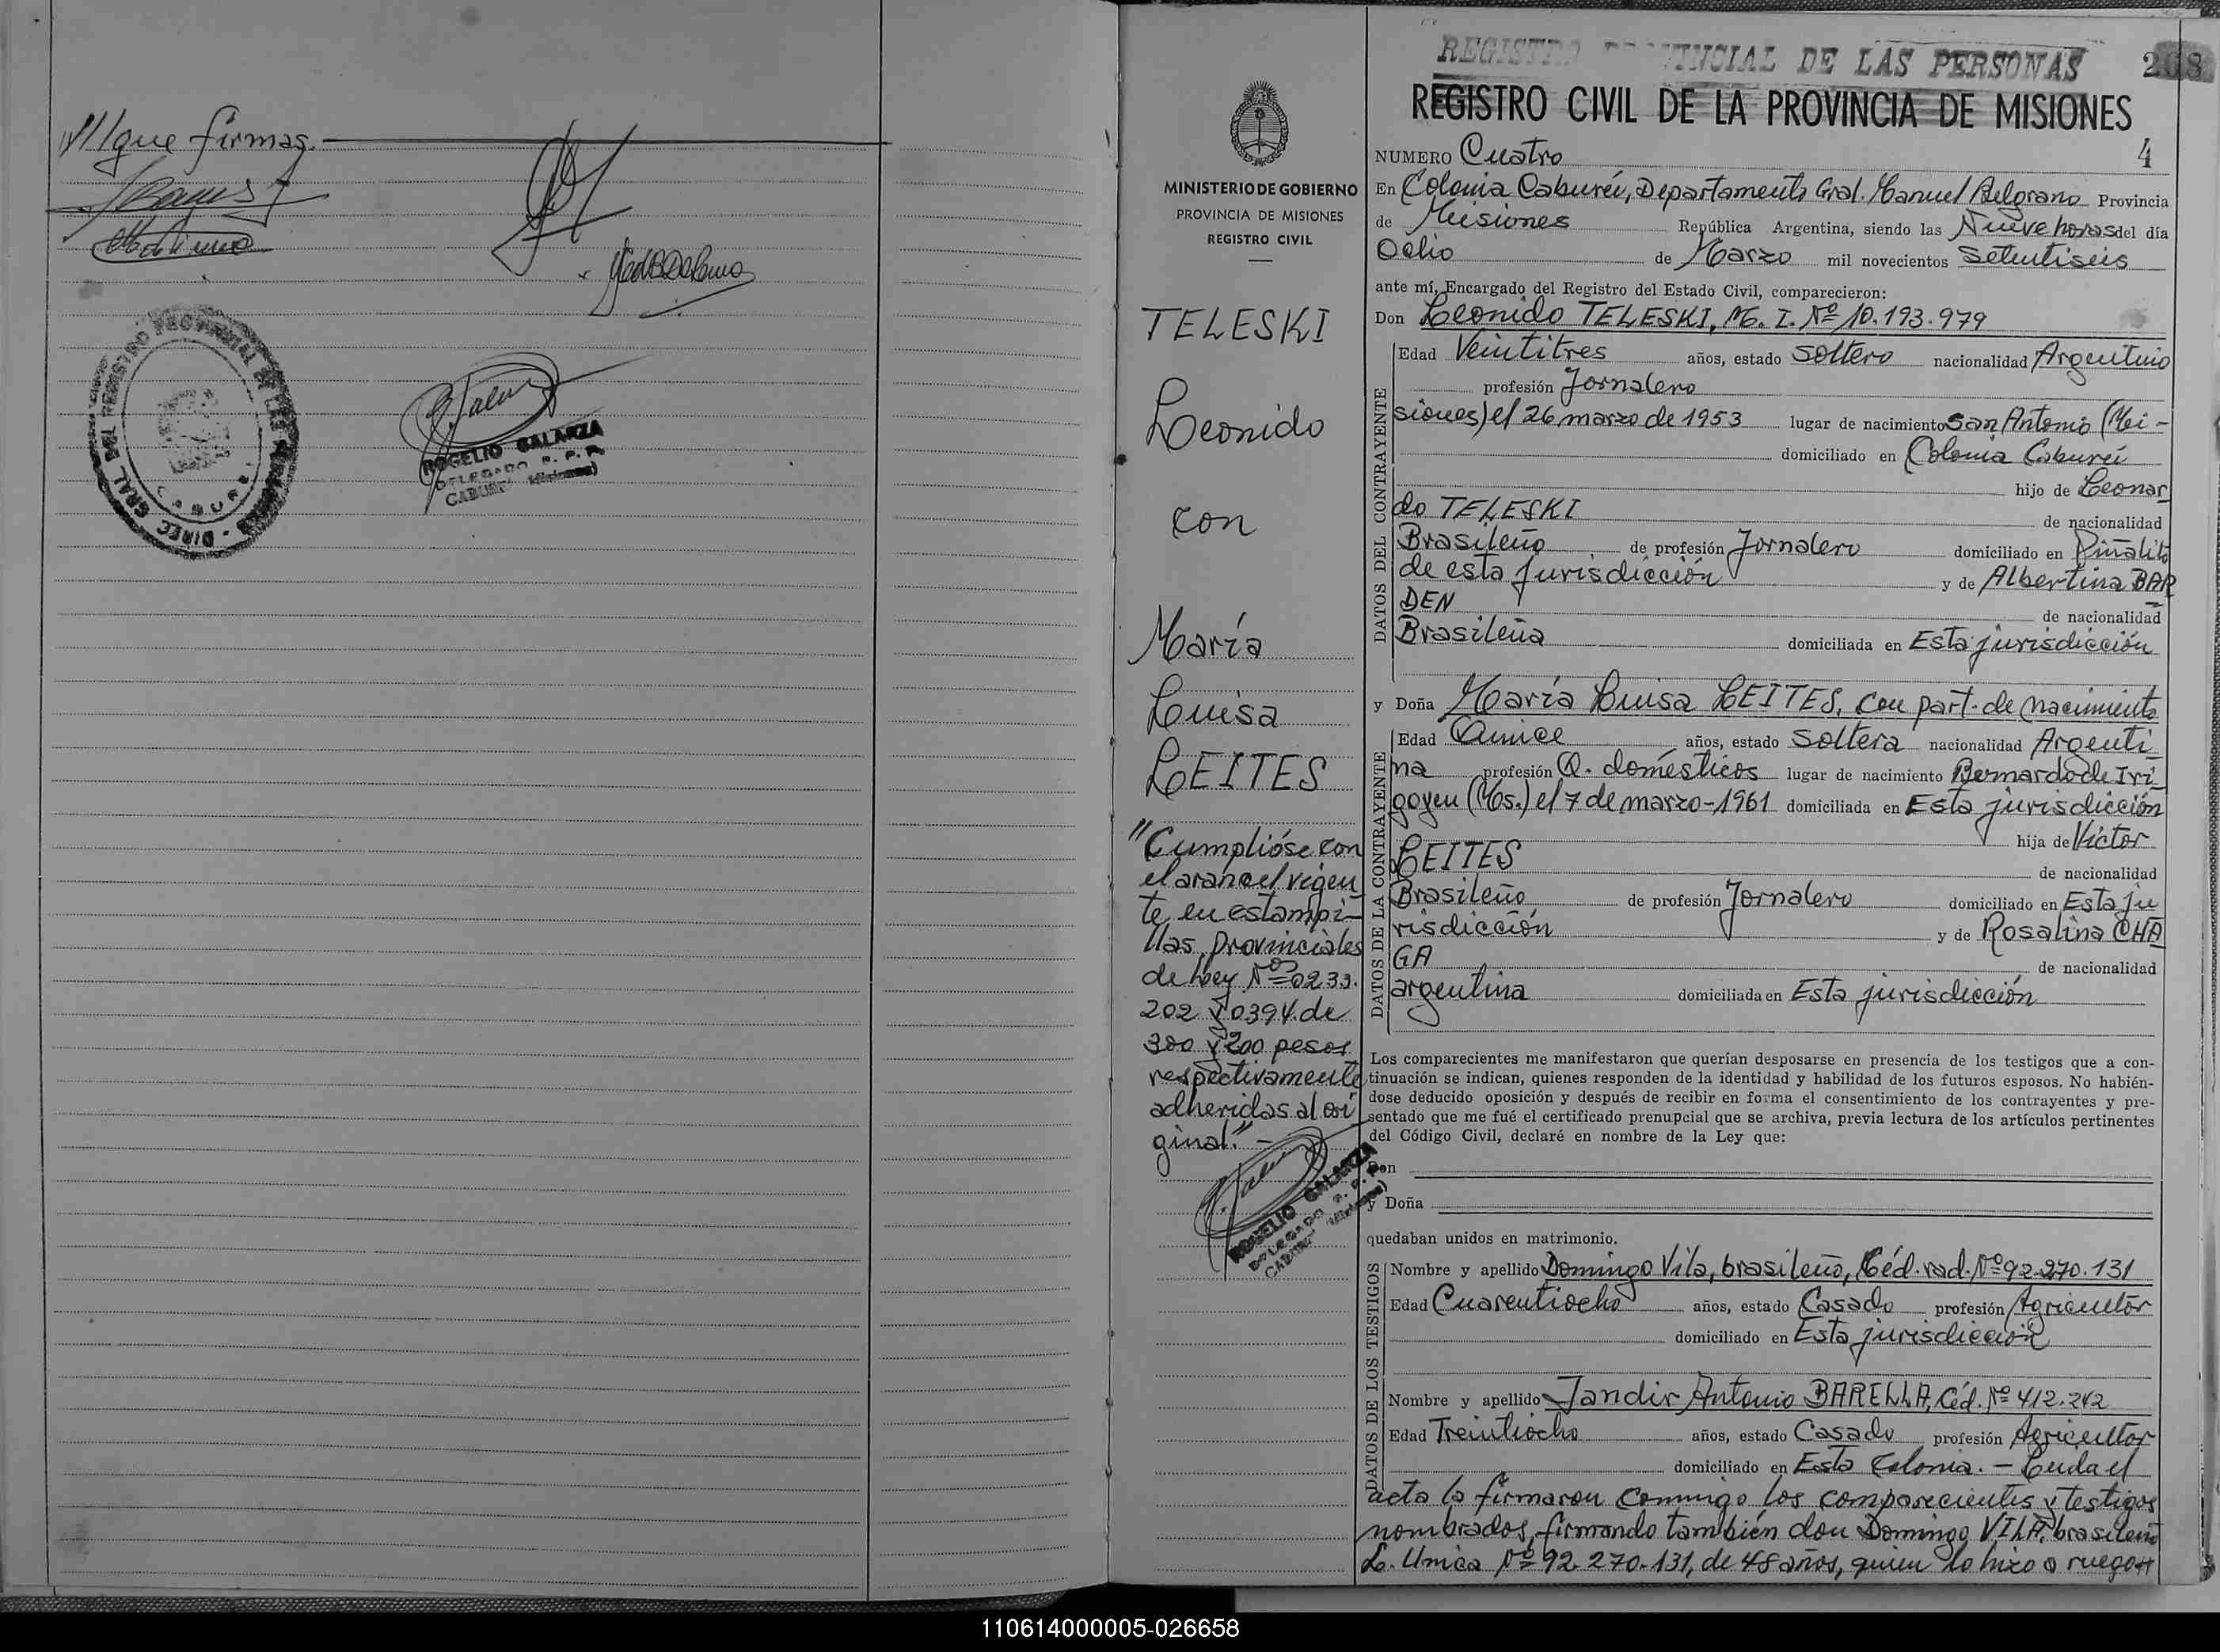 que firmas.
REGISTRO PROVINCIAL DE LAS PERSONAS
CABURE-I
DIREC. GRAL. DEL REGISTRO PROVINCIAL DE LAS PERSONAS
ROGELIO GALARZA
DELEGADO R. P. P.
CABURE-I (Misiones)
REGISTRO PROVINCIAL DE LAS PERSONAS
208
REGISTRO CIVIL DE LA PROVINCIA DE MISIONES
MINISTERIO DE GOBIERNO
PROVINCIA DE MISIONES
REGISTRO CIVIL
TELESKI
Leonido
con
María
Luisa
LEITES
"Cumplióse con
el arancel vigen
te en estampi-
llas provinciales
de Ley Nº 0233.
202 y 0394 de
300 y 200 pesos
respectivamente
adheridas al ori
ginal." -
ROGELIO GALARZA
DELEGADO R. P. P.
CABURE-I (Misiones)
NUMERO Cuatro 4
En Colonia Caburéi, Departamento Gral. Manuel Belgrano Provincia
de Misiones República Argentina, siendo las Nueve horas del día
Ocho de Marzo mil novecientos Setentiseis
ante mí, Encargado del Registro del Estado Civil, comparecieron:
Don Leonido TELESKI, M. I. Nº 10.193.979
DATOS DEL CONTRAYENTE
Edad Veintitres años, estado soltero nacionalidad Argentino
profesión Jornalero
siones) el 26 marzo de 1953 lugar de nacimiento San Antonio (Mi-
domiciliado en Colonia Caburéi
hijo de Leonar
do TELESKI
de nacionalidad
Brasileño de profesión Jornalero domiciliado en Piñalito
de esta jurisdicción y de Albertina BAR
DEN
de nacionalidad
Brasileña domiciliada en Esta jurisdicción
y Doña María Luisa LEITES, con part. de nacimiento
DATOS DE LA CONTRAYENTE
Edad Quince años, estado Soltera nacionalidad Argenti
na profesión Q. domésticos lugar de nacimiento Bernardo de Iri
goyen (Ms.) el 7 de marzo-1961 domiciliada en Esta jurisdicción
hija de Víctor
LEITES
de nacionalidad
Brasileño de profesión Jornalero domiciliado en Esta ju
risdicción y de Rosalina CHA
GA
de nacionalidad
argentina domiciliada en Esta jurisdicción
Los comparecientes me manifestaron que querían desposarse en presencia de los testigos que a con-
tinuación se indican, quienes responden de la identidad y habilidad de los futuros esposos. No habién-
dose deducido oposición y después de recibir en forma el consentimiento de los contrayentes y pre-
sentado que me fué el certificado prenupcial que se archiva, previa lectura de los artículos pertinentes
del Código Civil, declaré en nombre de la Ley que:
Don
y Doña
quedaban unidos en matrimonio.
DATOS DE LOS TESTIGOS
Nombre y apellido Domingo Vila, brasileño, Céd. rad. Nº 92.270.131
Edad Cuarentiocho años, estado Casado profesión Agricultor
domiciliado en Esta jurisdicción
Nombre y apellido Jandir Antonio BARELLA, Céd. Nº 412.242
Edad Treintiocho años, estado Casado profesión Agricultor
domiciliado en Esta Colonia. - Leida el
acta la firmaron conmigo los comparecientes y testigos
nombrados, firmando también don Domingo VILA, brasileño
L. Unica Nº 92.270.131, de 48 años, quien lo hizo a ruego
110614000005-026658